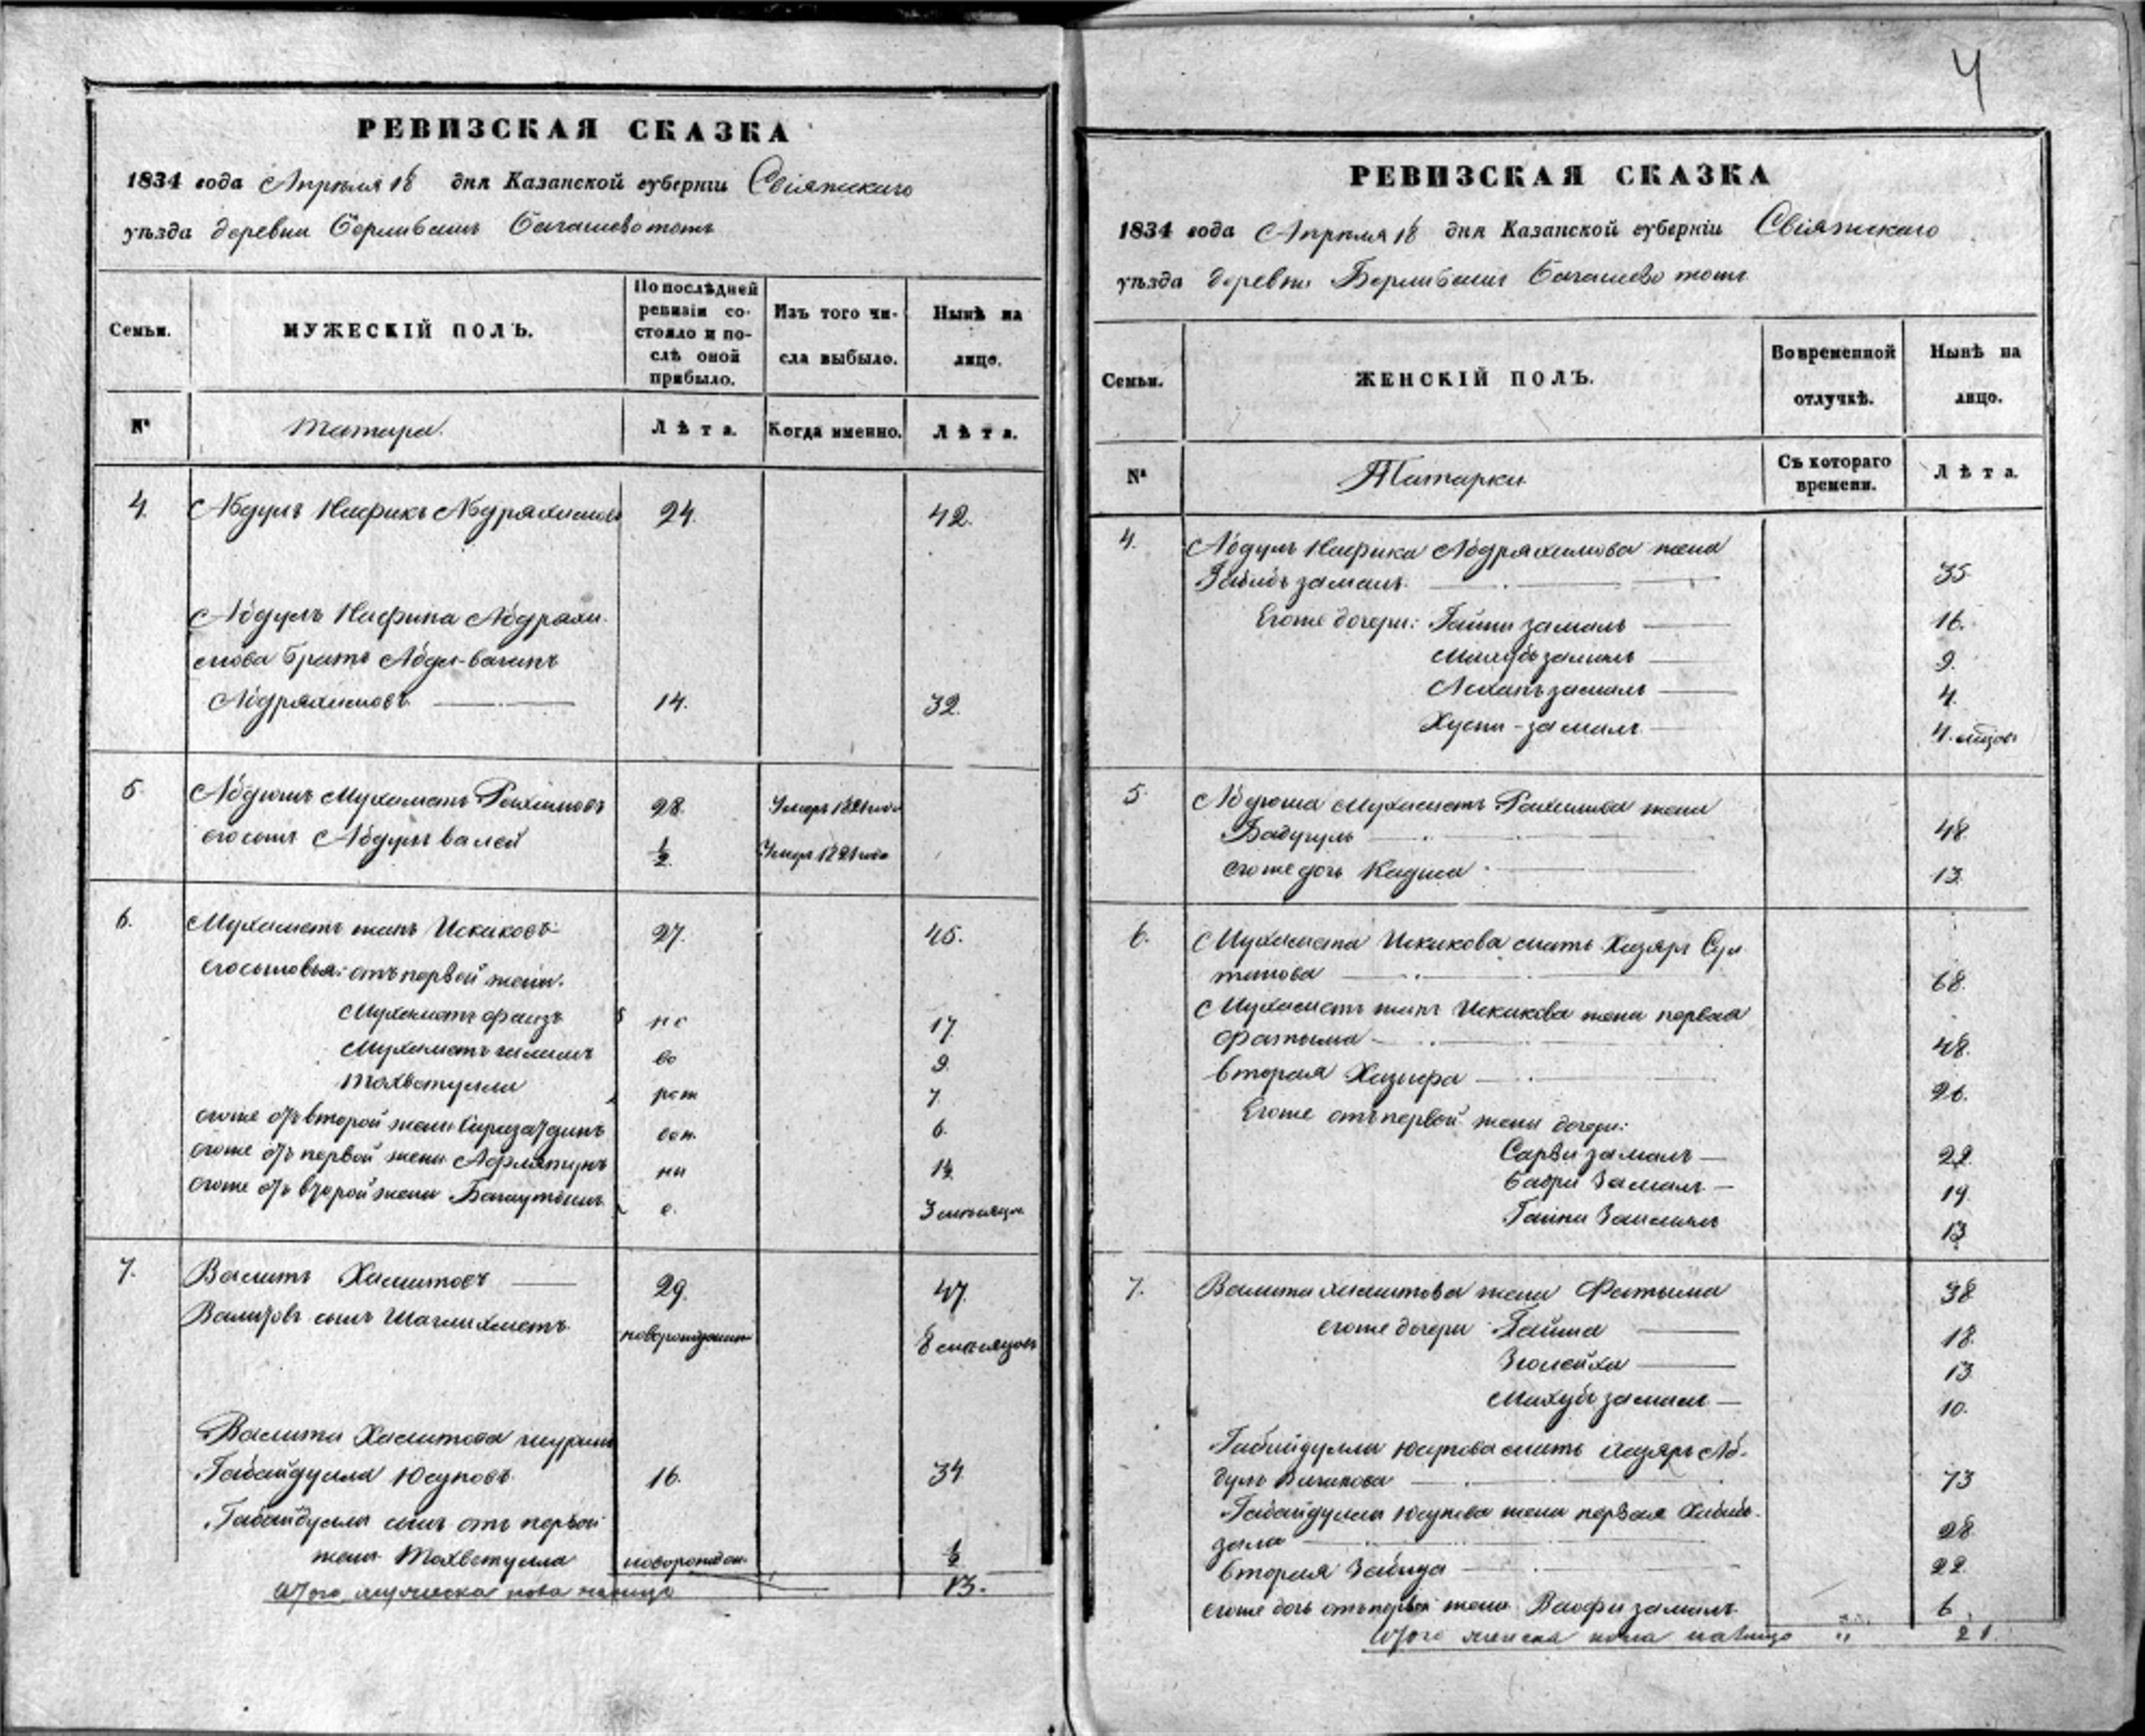 РЕВИЗСКАЯ СКАЗКА
1834 года Апреля 18 дня Казанской губерніи Свіяжскаго
уѣзда деревни Бермибашъ
Семьи.
МУЖЕСКІЙ ПОЛЪ.
По послѣдней ревизіи состояло и послѣ оной прибыло.
Изъ того числа выбыло.
Нынѣ на лицо.
№
Татара.
Лѣта.
Когда именно.
Лѣта.
4. Абдулъ Нафикъ Абдряхимовъ 24. 42.
Абдулъ Нафика Абдряхи
мова братъ
Абдряхимовъ 14. 32.
5. Мухаметъ Рахимовъ 28. Умеръ 1821 года
его сынъ Абдулъ валей 1/2. Умеръ 1821 года
6. Мухаметъ жанъ Искаковъ 27. 45.
его сыновья: отъ первой жены.
Мухаметъ фаизъ но 17.
Мухаметъ галимъ во 9.
Тохватулла рож 7.
егоже отъ второй жены 6.
егоже отъ первой жены ны 1 1/2
егоже отъ второй жены Багаутдинъ е. 3 месяца
7. Валитъ Хамитовъ 29. 47.
Валитовъ сынъ Шагиахметъ новорожденный 8 месяцовъ
Валита Хамитова шуринъ
Габайдулла Юсуповъ 16. 34.
Габайдуллы сынъ отъ первой
жены Тохватулла новорожден. 1/2
Итого мужеска пола налицо 13.
4
РЕВИЗСКАЯ СКАЗКА
1834 года Апреля 18 дня Казанской губерніи Свіяжскаго
уѣзда деревни Бермибашъ
Семьи.
ЖЕНСКІЙ ПОЛЪ.
Во временной отлучкѣ.
Нынѣ на лицо.
№
Татарки
Съ котораго времени.
Лѣта.
4. Абдулъ Нафика Абдряхимова жена
Габидьзамалъ 35
Егоже дочери: Гайнизамалъ 16.
Махубьзамалъ 9.
4.
Хусни-замалъ 4. месяцовъ
5. Мухаметъ Рахимова жена
Бадугуль 48.
егоже дочь 13.
6. Мухамета Искакова мать Хазяръ Сул
танова 68.
Мухаметъ жанъ Искакова жена первая
Фатыма 48.
вторая 26.
Егоже отъ первой жены дочери:
Сарвизамалъ 22.
Бадризамалъ 19.
Гайнизамалъ 13
7. Валита Хамитова жена Фатыма 38
егоже дочери 18.
Зюлейха 13
Махубьзамалъ 10.
Габайдуллы Юсупова мать Хазяръ Аб-
дулъ 73
Габайдуллы Юсупова жена первая Хабиб-
зала 28.
вторая Забида 22.
егоже дочь отъ первой жены Вафизамалъ 6.
Итого женска пола налицо " 21.